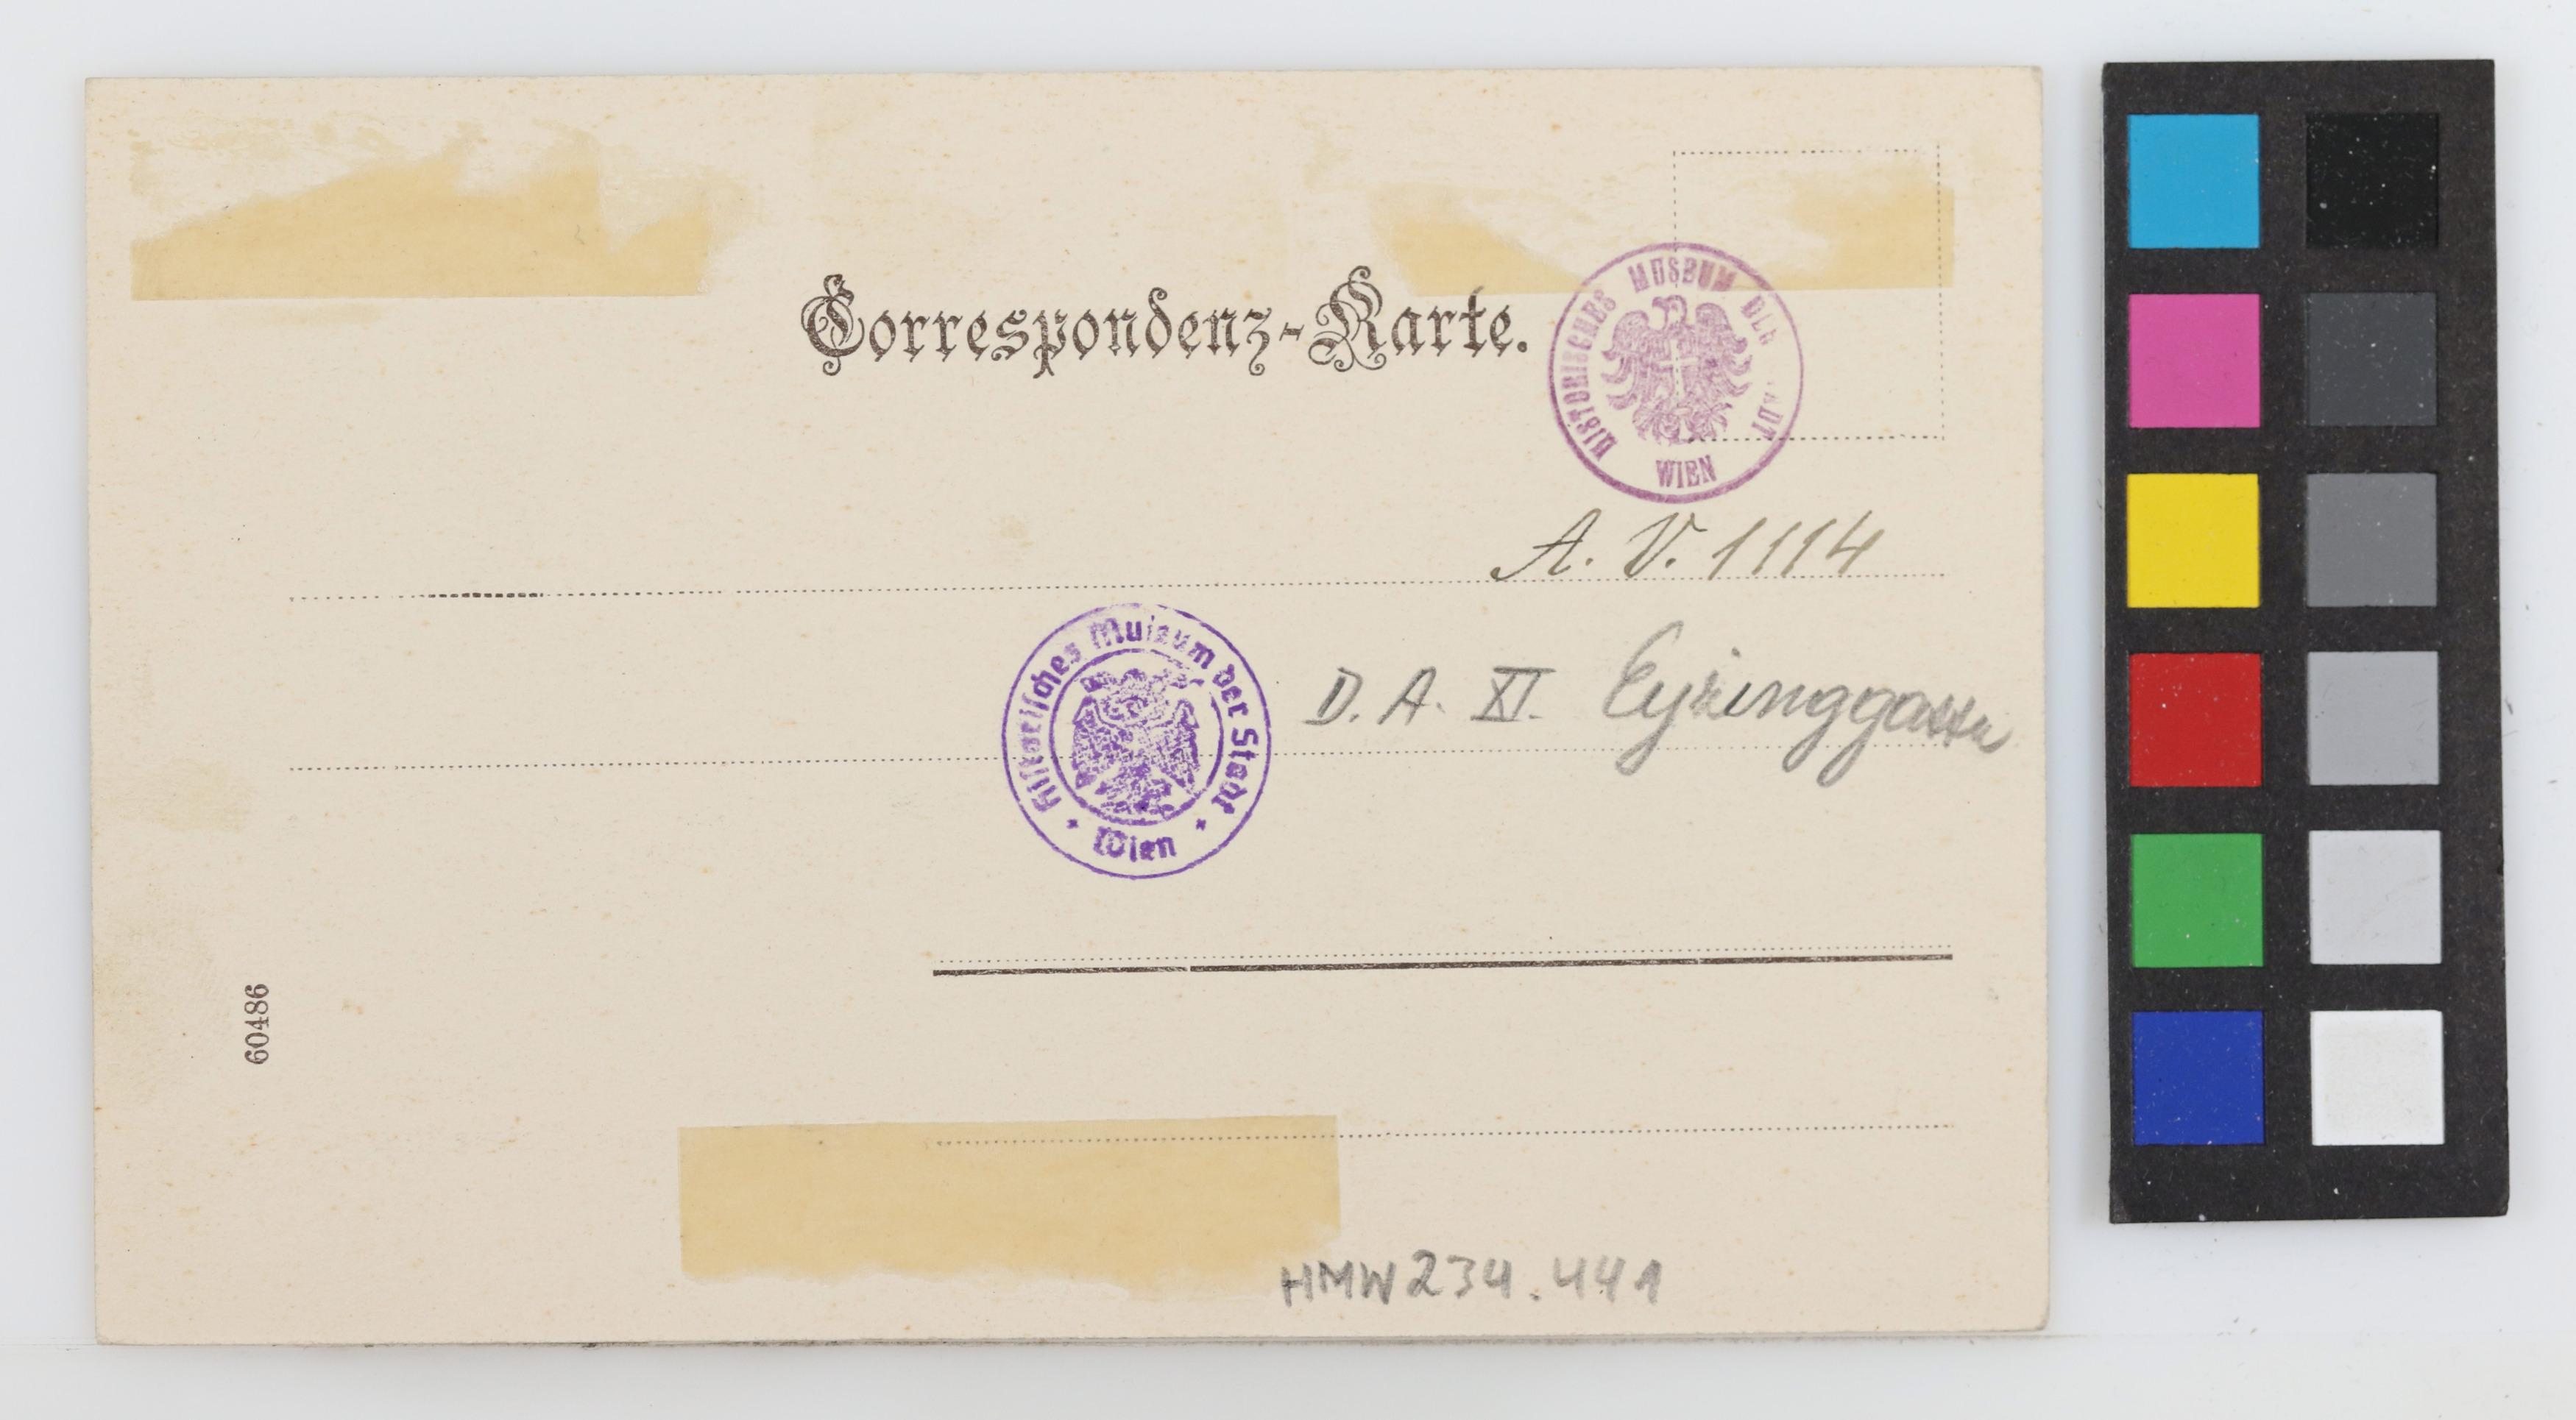 Correspondenz-Karte.
HISTORISCHES MUSEUM DER STADT WIEN
A. V. 1114
Historisches Museum der Stadt Wien
D. A. XI. Eyzinggasse
60486
HMW 234.441